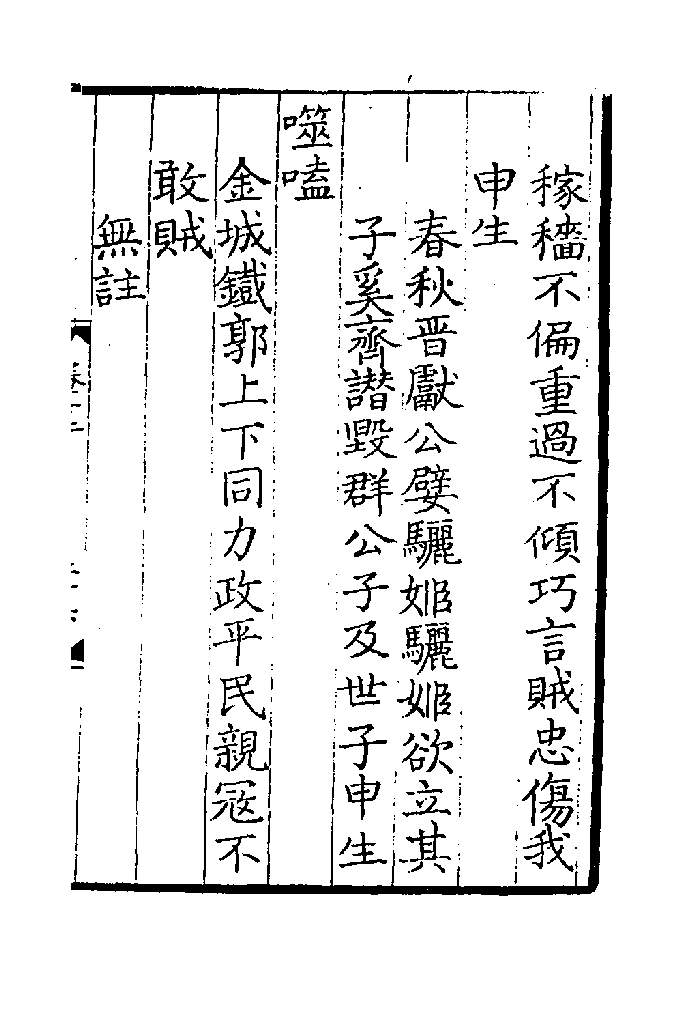 稼穡不偏重過不傾巧言賊忠傷我
申生
春秋晋獻公嬖驪姬驪姬欲立其
子奚齊譖毀群公子及世子申生
噬嗑
金城鐵郭上下同力政平民親冦不
敢賊
無註